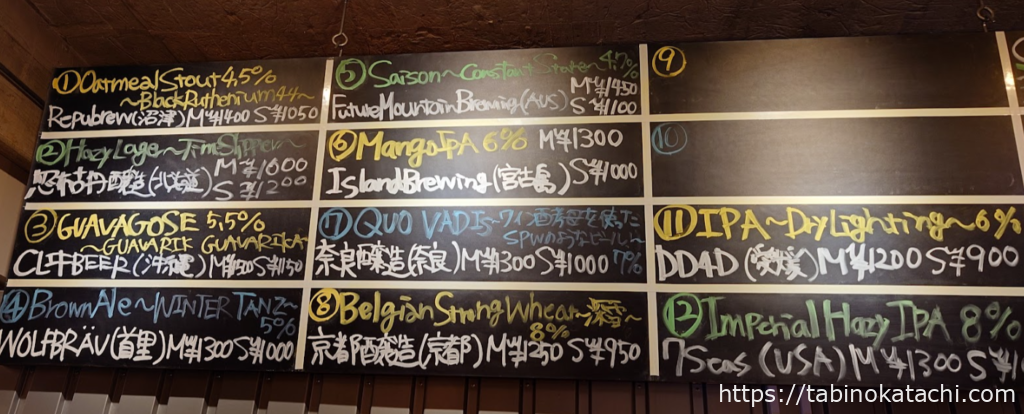 ①Oatmeal Stout 4,5%
~Black Ruthenium44~
Repubrew(沼津) M¥1400 S¥1050
②Hazy Lager~
M¥1600
醸造(北海道) S¥1200
③GUAVAGOSE 5,5%
~GUAVARIK GUAVARIKA~
CL BEER(沖縄) M¥1500 S¥1150
④Brown Ale~WINTER TANZ~
5%
WOLFBRÄU(首里) M¥1300 S¥1000
⑤Saison~Constant State~4.7%
M¥1450
Future Mountain Brewing(AUS) S¥1100
⑥Mango IPA 6% M¥1300
Island Brewing(宮古島) S¥1000
⑦QUO VADIS~ワイン酒香を使った
SPWのようなビール~
奈良醸造(奈良) M¥1300 S¥1000 7%
⑧Belgian Strong Wheat~深雪~
8%
京都醸造(京都) M¥1250 S¥950
⑨
⑩
⑪IPA~Dry Lighting~6%
DD4D(愛媛) M¥1200 S¥900
⑫Imperial Hazy IPA 8%
7Seas(USA) M¥1300
https://tabinokatachi.com